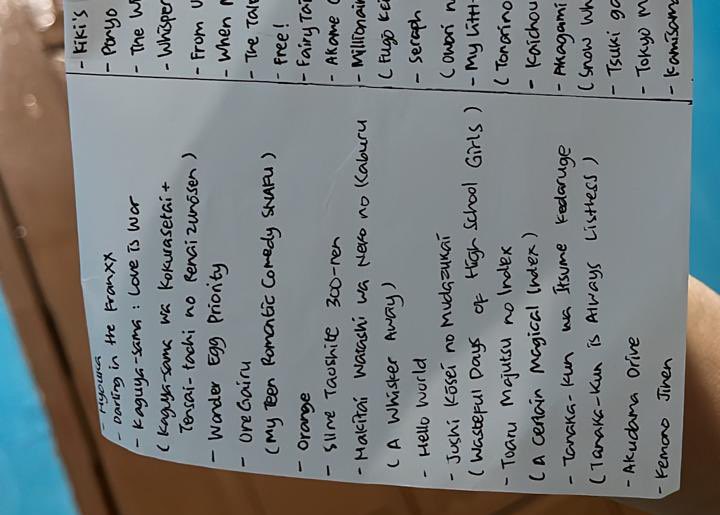 - Hyouka
- Darling in the Franxx
- Kaguya-sama : Love is War
( Kaguya-sama wa Kokurasetai +
Tensai-tachi no Renai zunōsen )
- Wonder Egg Priority
- OreGairu
( My Teen Romantic Comedy SNAFU )
- Orange
- Slime Taoshite 300-nen
- Nakitai Watashi wa Neko no Kaburu
( A Whisker Away )
- Hello World
- Joshi Kosei no Mudazukai
( Wasteful Days of High School Girls )
- Toaru Majutsu no Index
( A Certain Magical Index )
- Tanaka-kun wa Itsume Kedaruge
( Tanaka-kun is Always Listless )
- Akudama Drive
- Kemono Jihen
- Kiki's
- Ponyo
- The W
- Whisper
- From U
- When M
- The Tale
- Free!
- Fairy Tai
- Akame G
- Millionair
( Fugo Kei
- Seraph
( Owari n
- My Littl
( Tonarino
- Kaichou
- Akagami
( Snow Wh
- Tsuki ga
- Tokyo M
- Kamisam